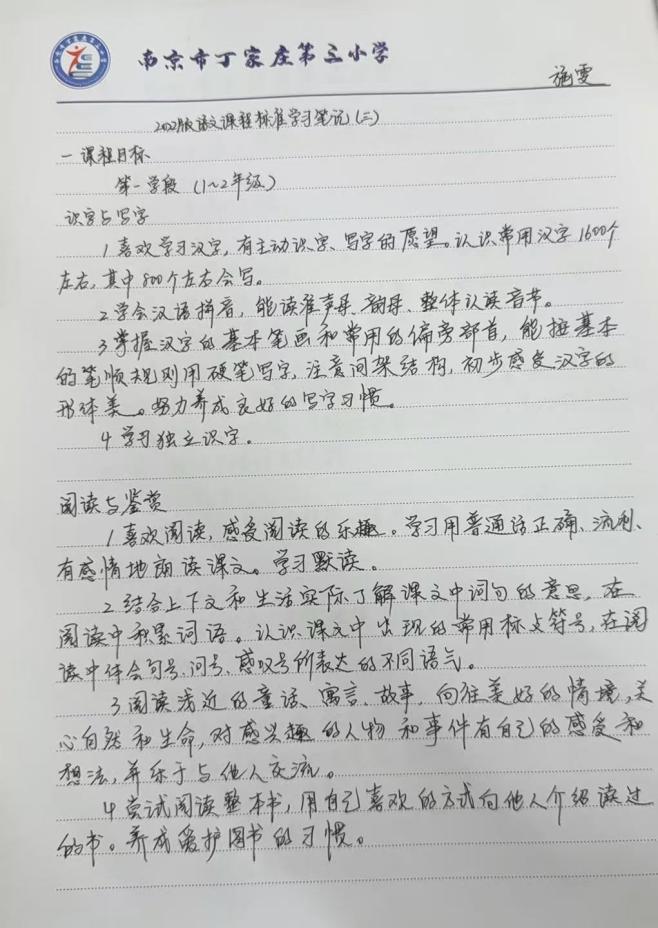 南京市丁家庄第三小学
施雯
2022版语文课程标准学习笔记(三)
一课程目标
第一学段(1~2年级)
识字与写字
1喜欢学习汉字,有主动识字、写字的愿望。认识常用汉字1600个
左右,其中800个左右会写。
2学会汉语拼音,能读准声母、韵母、整体认读音节。
3掌握汉字的基本笔画和常用的偏旁部首,能按基本
的笔顺规则用硬笔写字,注意间架结构,初步感受汉字的
形体美。努力养成良好的写字习惯。
4学习独立识字。
阅读与鉴赏
1喜欢阅读,感受阅读的乐趣。学习用普通话正确、流利、
有感情地朗读课文。学习默读。
2结合上下文和生活实际了解课文中词句的意思,在
阅读中积累词语。认识课文中出现的常用标点符号,在阅
读中体会句号、问号、感叹号所表达的不同语气。
3阅读浅近的童话、寓言、故事,向往美好的情境,关
心自然和生命,对感兴趣的人物和事件有自己的感受和
想法,并乐于与他人交流。
4尝试阅读整本书,用自己喜欢的方式向他人介绍读过
的书。养成爱护图书的习惯。